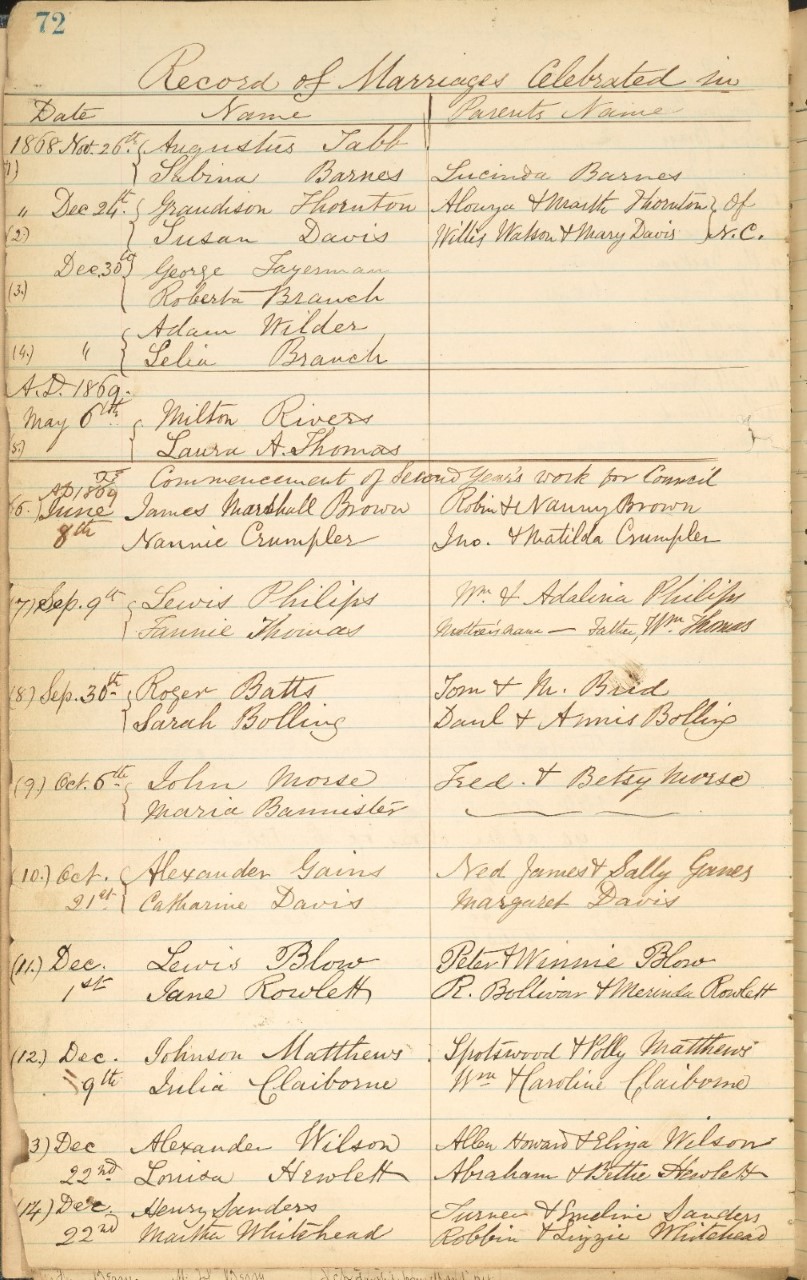 72
Record of Marriages Celebrated in
Date Name Parents Name
1868 Nov. 26th Augustus Tabb
(1) Sabina Barnes Lucinda Barnes
" Dec 24th. Grandison Thornton Alonza & Marth Thornton } Of
(2.) Susan Davis Willis Watson & Mary Davis } N.C.
Dec. 30th George Tayerman
(3.) Roberta Branch
Adam Wilder
(4.) " Lelia Branch
A.D. 1869.
May 6th Milton Rivers
(5.) Laura A. Thomas
Commencement of Second Year's work for Council
AD 1869
(6.) June James Marshall Brown Robin & Nanny Brown
8th Nannie Crumpler Jno. & Matilda Crumpler
(7) Sep. 9th Lewis Philips Wm. & Adalina Philips
Fannie Thomas Mother's name — Father, Wm. Thomas
(8) Sep. 30th Roger Batts Tom & M. Bird
Sarah Bolling Danl & Annis Bolling
(9.) Oct. 6th John Morse Fred. & Betsy Morse
Maria Bannister
(10.) Oct. Alexander Gains Ned James & Sally Ganes
21st Catharine Davis Margaret Davis
(11.) Dec. Lewis Blow Peter & Winnie Blow
1st Jane Rowlett R. Bollivar & Merinda Rowlett
(12.) Dec. Johnson Matthews Spotswood & Polly Matthews
9th Julia Claiborne Wm & Caroline Claiborne
3) Dec Alexander Wilson Allen Howard & Eliza Wilson
22nd Louisa Hewlett Abraham & Bettie Hewlett
(14) Dec. Henry Sanders Turner & Emeline Sanders
22nd Martha Whitehead Robbin & Lizzie Whitehead